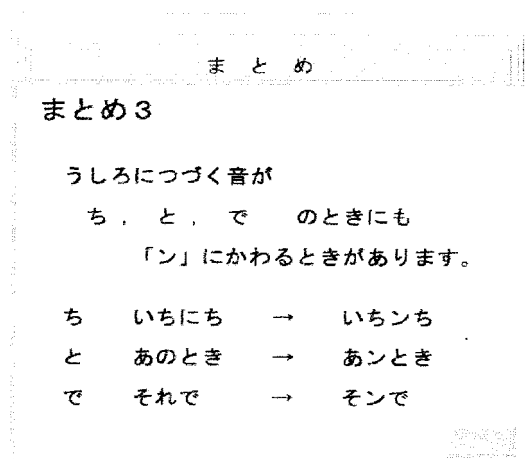 まとめ
まとめ３
うしろにつづく音が
ち，と，で　のときにも
「ン」にかわるときがあります。
ち　いちにち　→　いちンち
と　あのとき　→　あンとき
で　それで　→　そンで